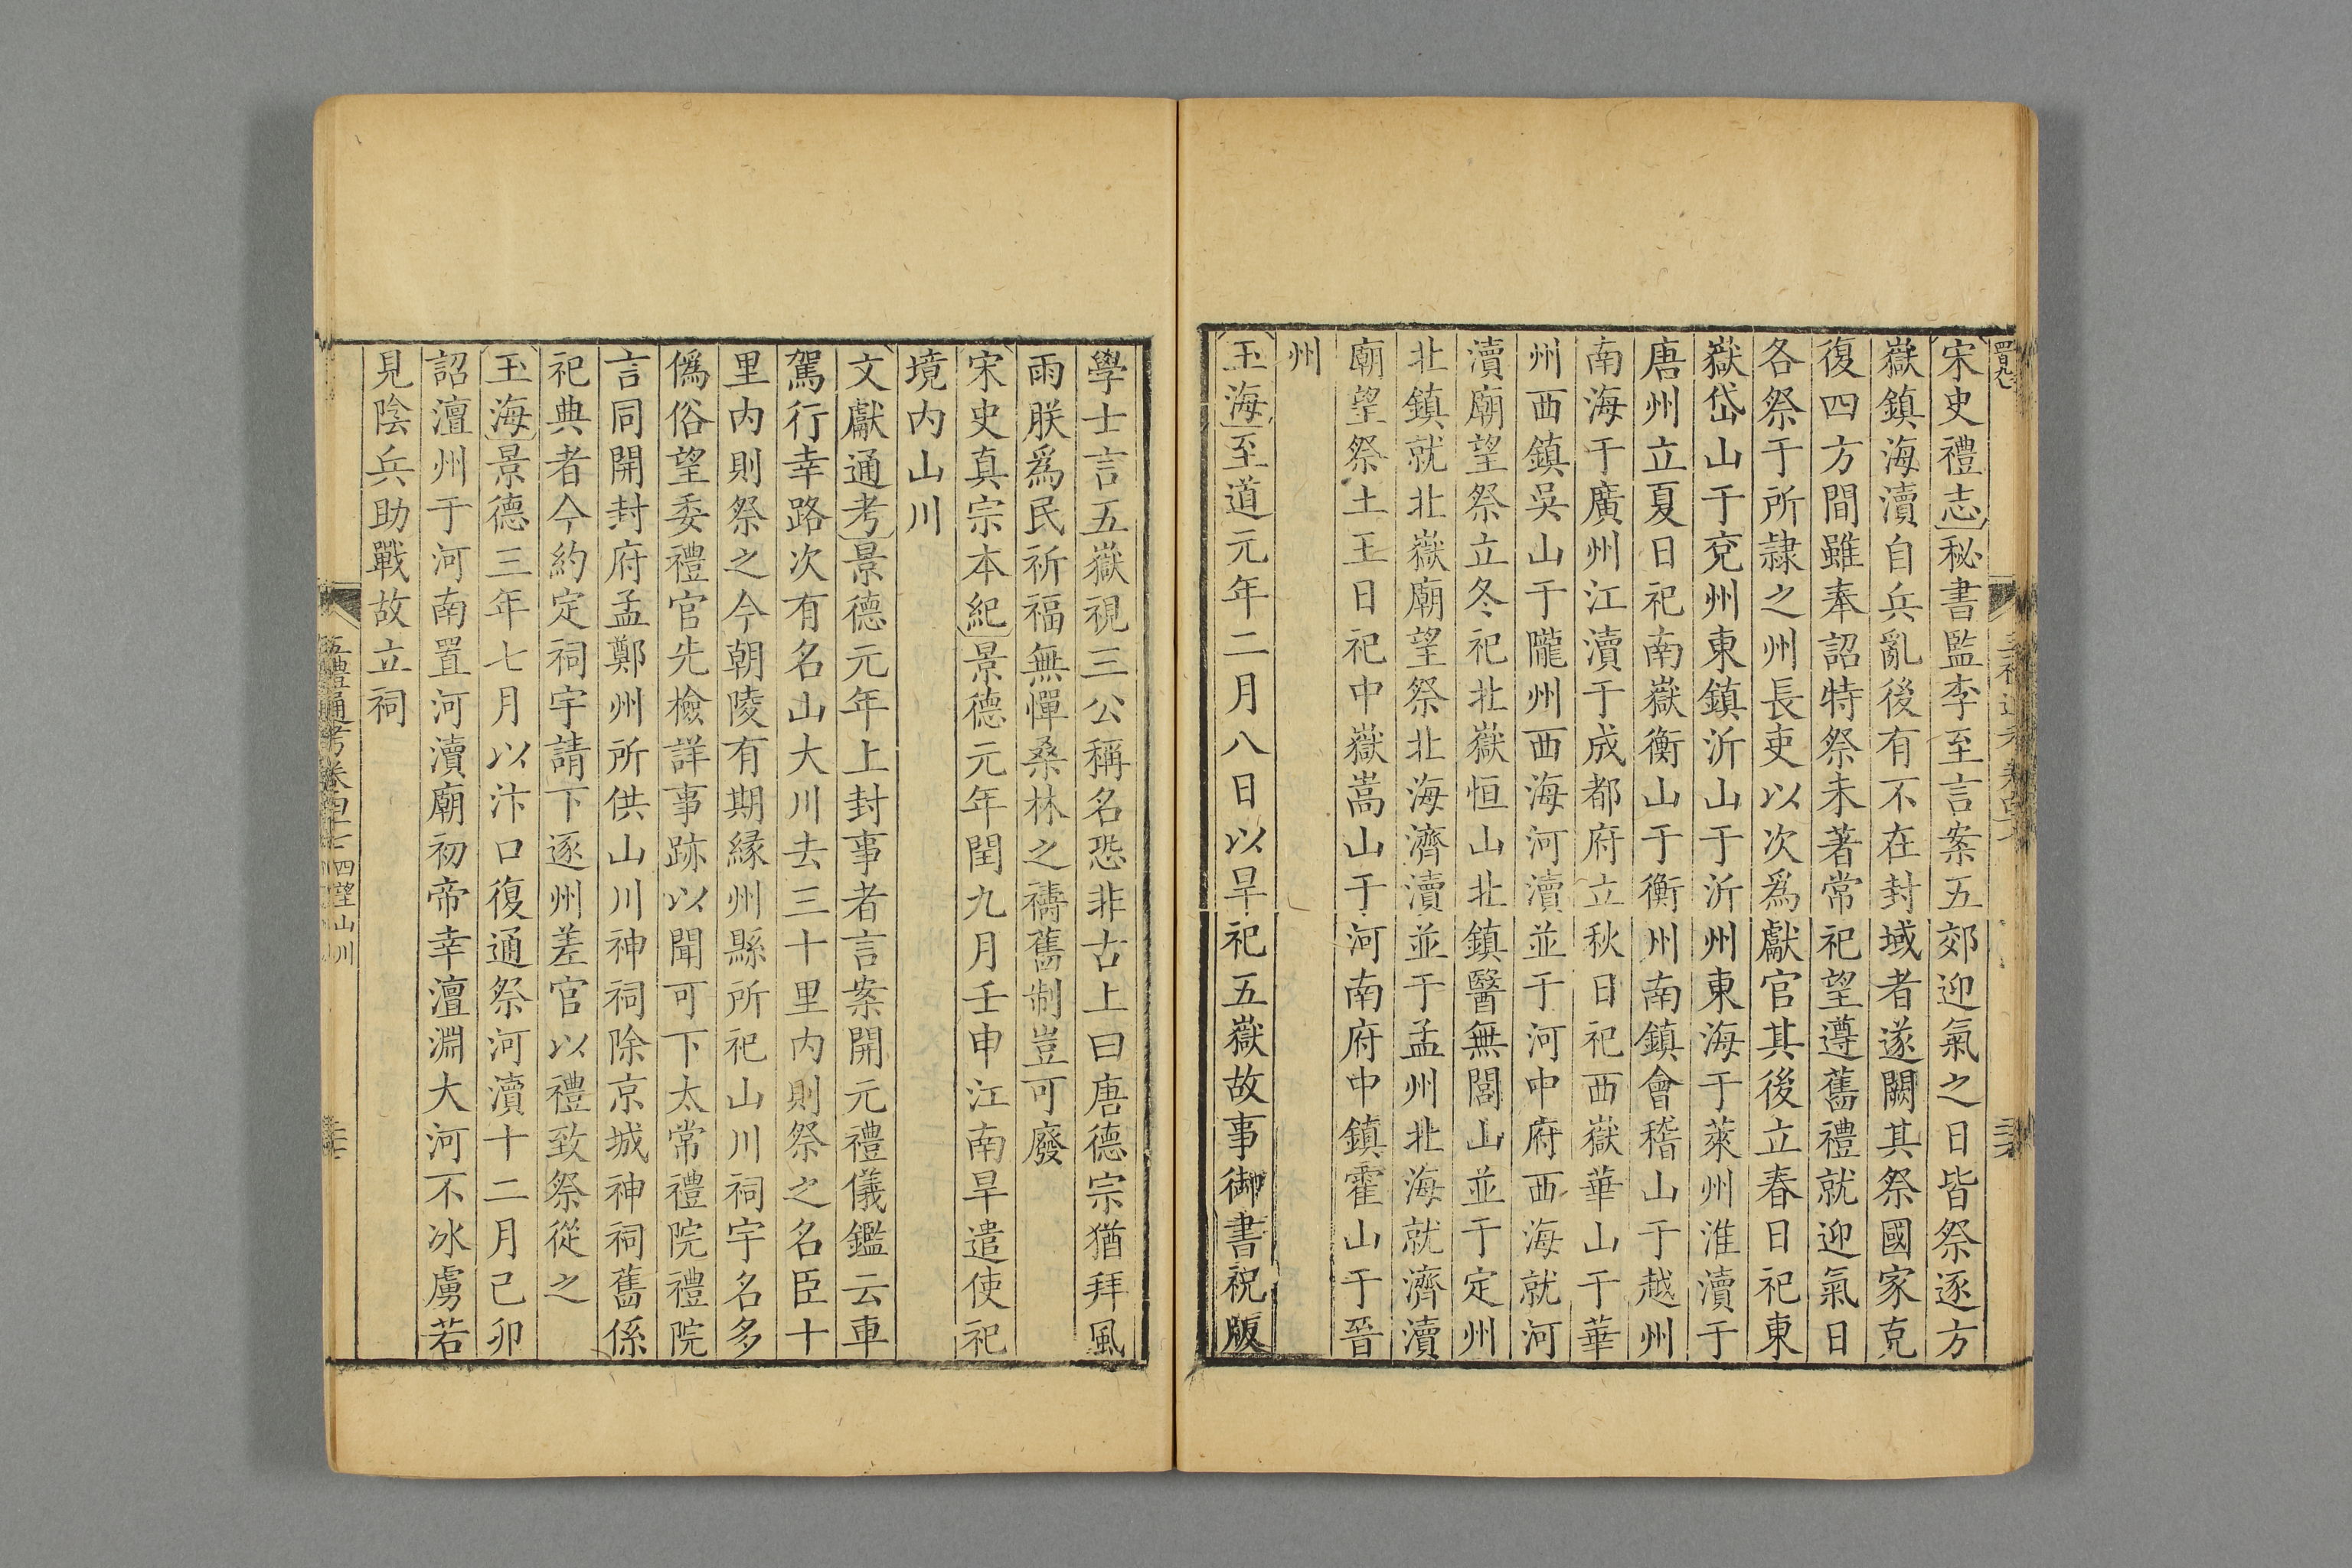 宋史禮志秘書監李至言案五郊迎氣之日皆祭逐方
嶽鎮海瀆自兵亂後有不在封域者遂闕其祭國家克
復四方間雖奉詔特祭未著常祀望遵舊禮就迎氣日
各祭于所隷之州長吏以次爲獻官其後立春日祀東
嶽岱山于兖州東鎮沂山于沂州東海于萊州淮瀆于
唐州立夏日祀南嶽衡山于衡州南鎮會稽山于越州
南海于廣州江瀆于成都府立秋日祀西嶽華山于華
州西鎮吳山于隴州西海河瀆並于河中府西海就河
瀆廟望祭立冬祀北嶽恒山北鎮醫無閭山並于定州
北鎮就北嶽廟望祭北海濟瀆並于孟州北海就濟瀆
廟望祭土王日祀中嶽嵩山于河南府中鎮霍山于晉
州
玉海至道元年二月八日以旱祀五嶽故事御書祝版
學士言五嶽視三公稱名恐非古上曰唐德宗猶拜風
雨朕爲民祈福無憚桑林之禱舊制豈可廢
宋史真宗本紀景德元年閏九月壬申江南旱遣使祀
境内山川
文獻通考景德元年上封事者言案開元禮儀鑑云車
駕行幸路次有名山大川去三十里内則祭之名臣十
里内則祭之今朝陵有期縁州縣所祀山川祠宇名多
僞俗望委禮官先檢詳事跡以聞可下太常禮院禮院
言同開封府孟鄭州所供山川神祠除京城神祠舊係
祀典者今約定祠宇請下逐州差官以禮致祭從之
玉海景德三年七月以汴口復通祭河瀆十二月己卯
詔澶州于河南置河瀆廟初帝幸澶淵大河不冰虜若
見陰兵助戰故立祠
五禮通考卷 四望山川